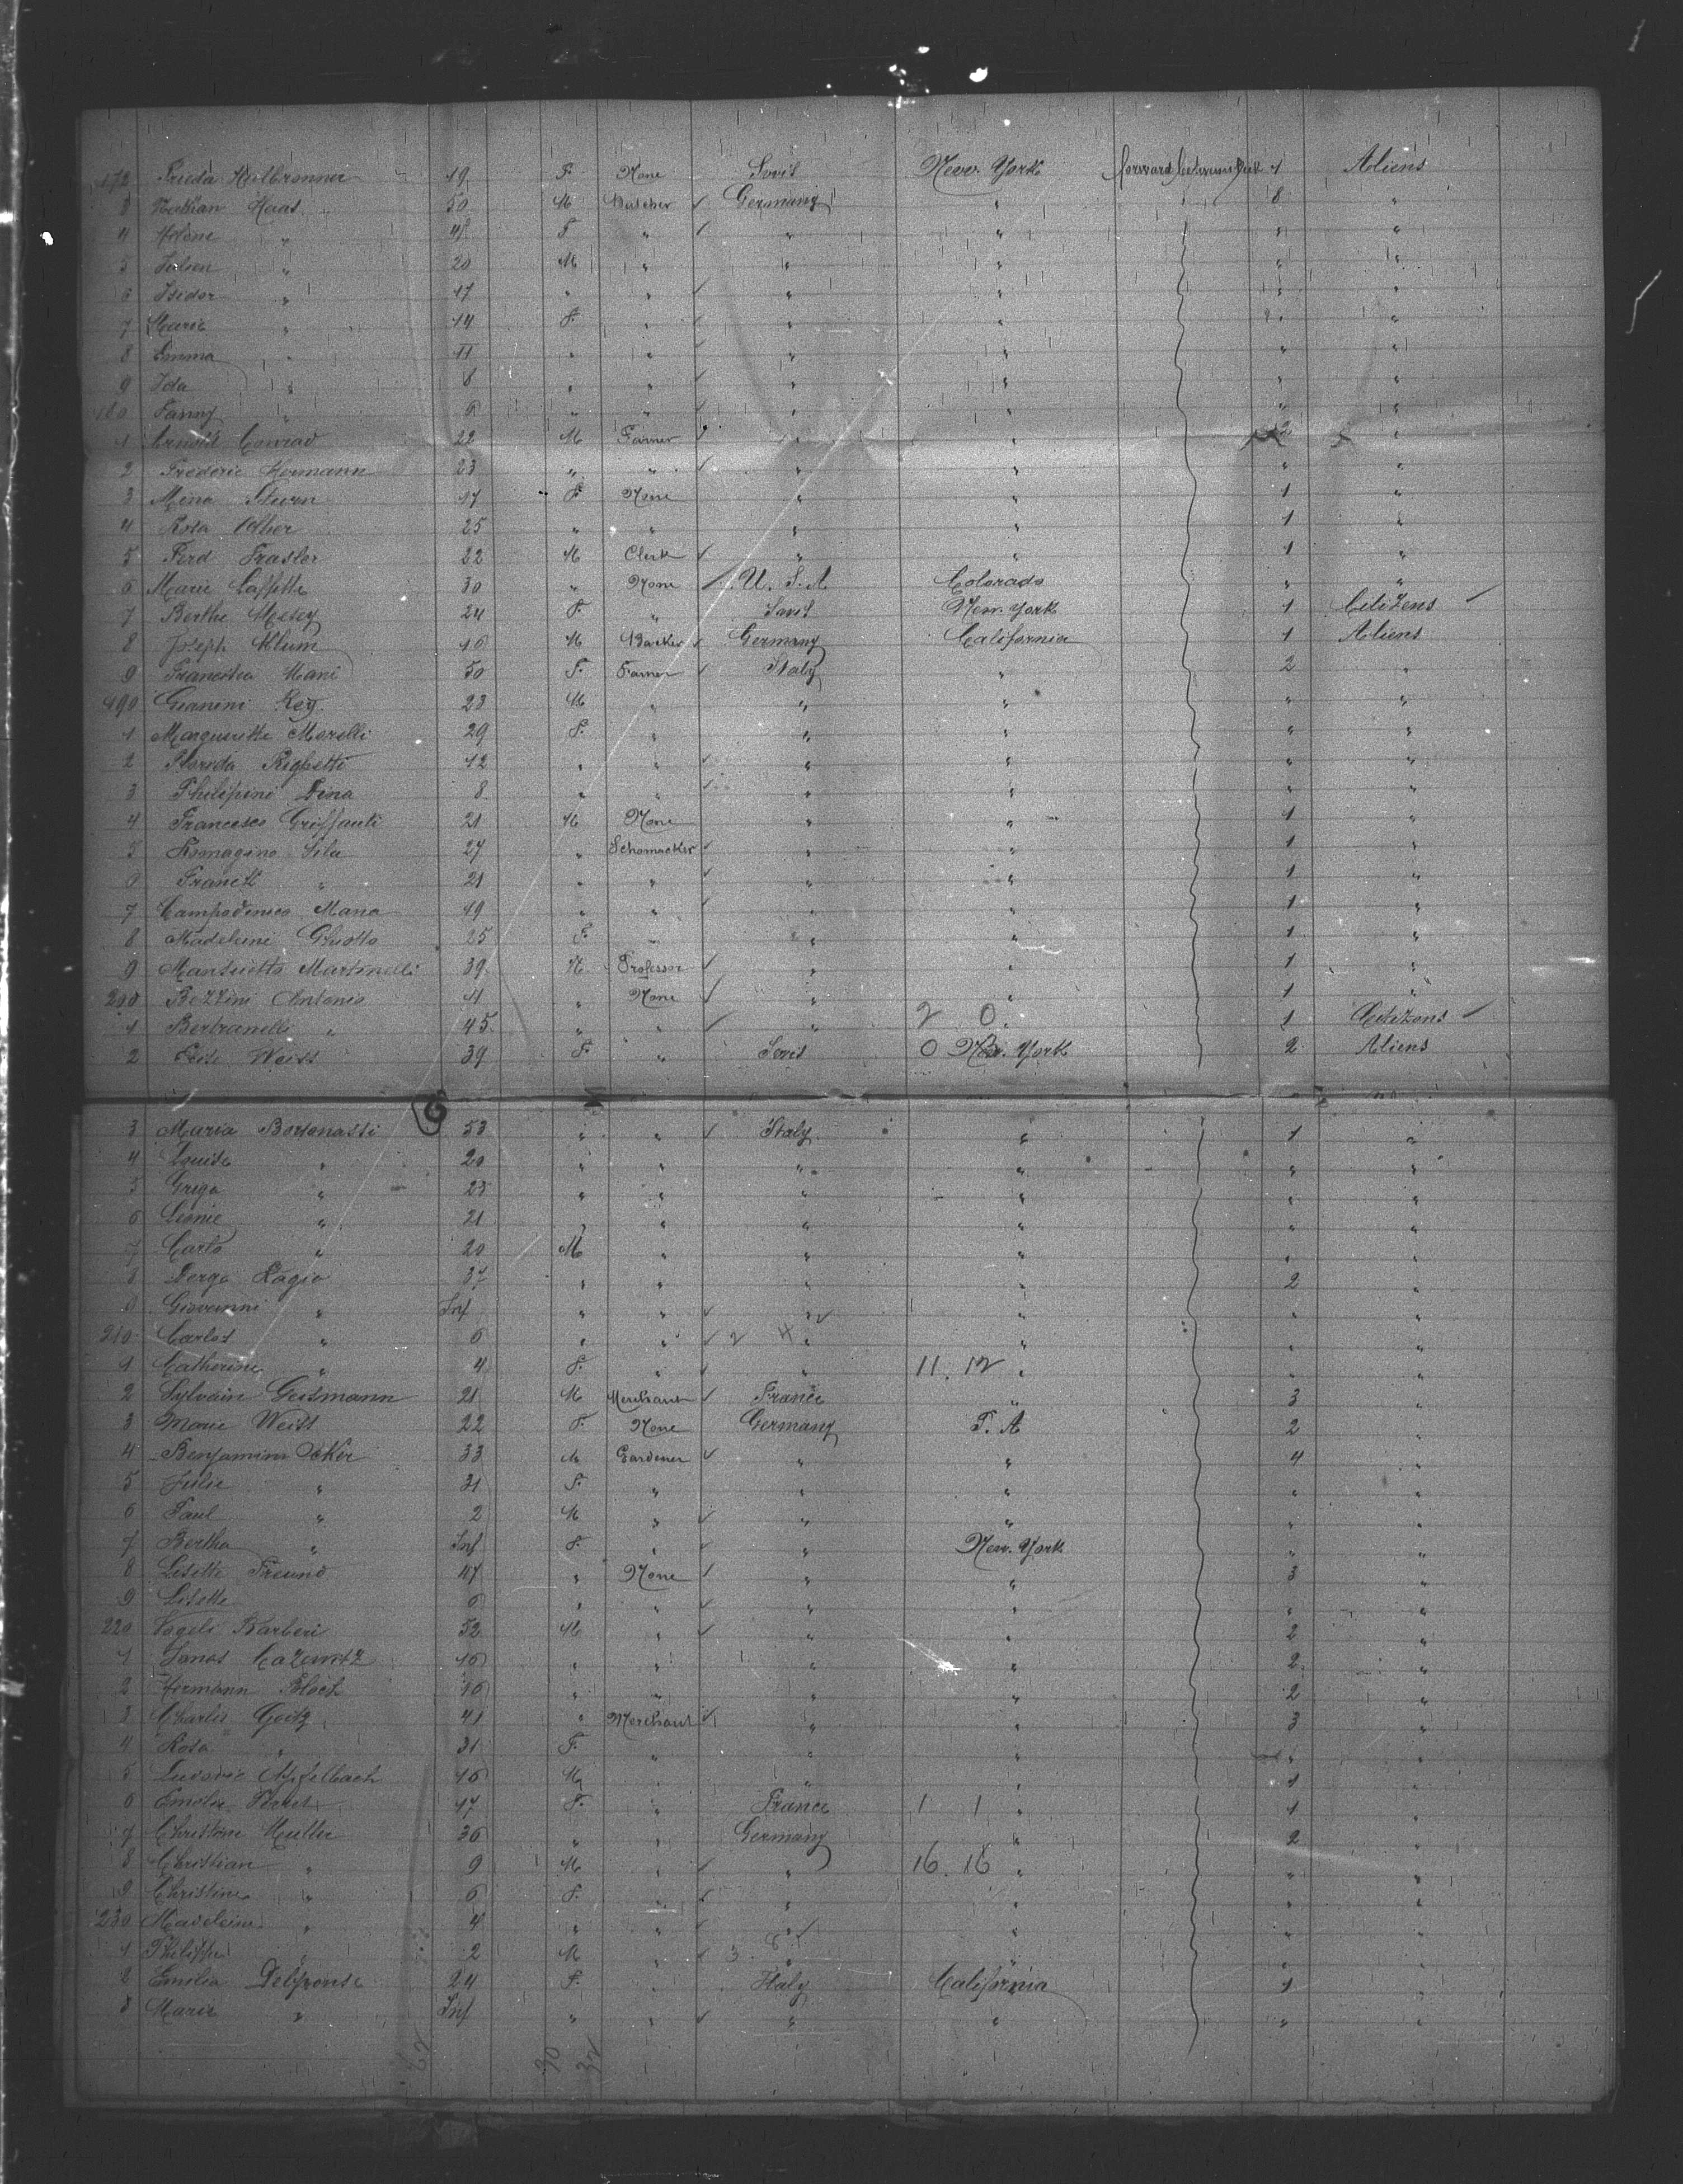 172 Frieda Heilbronner 19 F. None Swit New York forward between deck 1 Aliens
3 Nathan Haas 50 M Butcher Germany " 8 "
4 Helene " 48 F " " " " "
5 Julien " 20 M " " " " "
6 Isidor " 17 " " " " " "
7 Marie " 14 F. " " " " "
8 Emma " 11 " " " " " "
9 Ida " 8 " " " " " "
180 Fanny " 6 " " " " " "
1 Conrad 22 M Farmer " " 2 "
2 Frederic Hermann 23 " " " " " "
3 Mina Sturn 17 F. None " " 1 "
4 Rosa 25 " " " " 1 "
5 Ferd Frasler 22 M Clerk " " 1 "
6 Marie Laffitte 30 " None U. S. A Colorado " "
7 Berthe Messey 24 F. " Swit New York 1 Citizens
8 Joseph Klum 16 M Barker Germany California 1 Aliens
9 Francisca Mani 50 F. Farmer Italy " 2 "
190 Gianini Rey 23 M " " " " "
1 Marguerette Morelli 29 F. " " " " "
2 Floreda Righetti 12 " " " " " "
3 Philipini Dina 8 " " " " " "
4 Francesco Griffanti 21 M None " " 1 "
5 Romagino Sila 27 " Schomacker " " 1 "
6 Franck " 21 " " " " 1 "
7 Campodenico Mana 19 " " " " 1 "
8 Madeleine Ghiotto 25 F. " " " 1 "
9 Mansuetto Martinelli 39 M Professor " " 1 "
200 Bozzini Antonio 11 " None " " 1 "
1 Bertranelli " 45 " " " 2 0 1 Citizens
2 Weiss 39 F. " Swit 0 New York 2 Aliens
6
3 Maria Borsonassi 53 " " Italy " 1 "
4 Louise " 20 " " " " " "
5 Griga " 23 " " " " " "
6 Leonie " 21 " " " " " "
7 Carlo " 20 M " " " " "
8 Derga Ragio 37 " " " " 2 "
9 Giovanni " Inf " " " " " "
210 Carlos " 6 " " 2 4 " " " "
1 Catherine " 4 F. " " 11. 12 " " "
2 Sylvain Geismann 21 M Merchant France " 3 "
3 Marie Weiss 22 F. None Germany P. A 2 "
4 Benjamin Acker 33 M Gardener " " 4 "
5 Julie " 31 F. " " " " "
6 Paul " 2 M " " " " "
7 Bertha " Inf F. " " New York " "
8 Lisette Freund 47 " None " " 3 "
9 Lisette 6 " " " " " "
220 Vogeli Barberi 52 M " " " 2 "
1 Jonas 16 " " " " 2 "
2 Hermann Bloch 16 " " " " 2 "
3 Charles Goitz 41 " Merchant " " 3 "
4 Rosa " 31 F. " " " " "
5 Ludovic Apfelbach 16 M " " " 1 "
6 Emilie 17 F. " France 1 1 " 1 "
7 Christine Muller 36 " " Germany " 2 "
8 Christian " 9 M " " 16. 16 " " "
9 Christine " 6 F. " " " " "
230 Madeleine " 4 " " " " " "
1 Philippe " 2 M " 3. 8 " " " "
2 Emilia Delponse 24 F. " Italy California 1 "
3 Marie " Inf " " " " " "
62 30 32